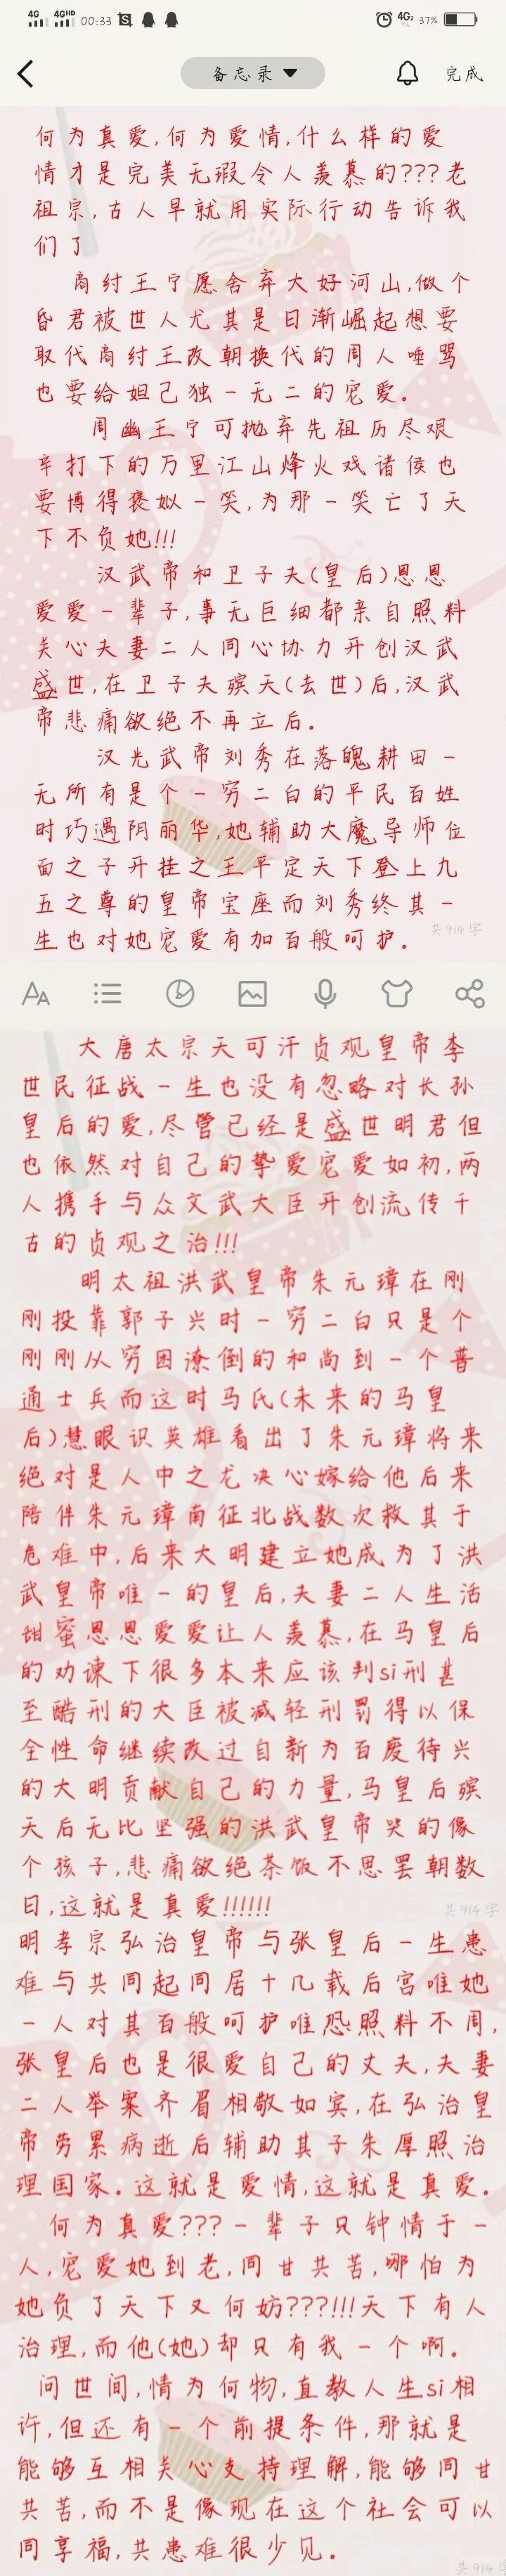 4G 4GHD 00:33 4G2 37%
备忘录 ▼ 完成
何为真爱,何为爱情,什么样的爱
情才是完美无瑕令人羡慕的???老
祖宗,古人早就用实际行动告诉我
们了
商纣王宁愿舍弃大好河山,做个
昏君被世人尤其是日渐崛起想要
取代商纣王改朝换代的周人唾骂
也要给妲己独一无二的宠爱。
周幽王宁可抛弃先祖历尽艰
辛打下的万里江山烽火戏诸侯也
要博得褒姒一笑,为那一笑亡了天
下不负她!!!
汉武帝和卫子夫(皇后)恩恩
爱爱一辈子,事无巨细都亲自照料
关心夫妻二人同心协力开创汉武
盛世,在卫子夫殡天(去世)后,汉武
帝悲痛欲绝不再立后。
汉光武帝刘秀在落魄耕田一
无所有是个一穷二白的平民百姓
时巧遇阴丽华,她辅助大魔导师位
面之子开挂之王平定天下登上九
五之尊的皇帝宝座而刘秀终其一
生也对她宠爱有加百般呵护。
共914字
大唐太宗天可汗贞观皇帝李
世民征战一生也没有忽略对长孙
皇后的爱,尽管已经是盛世明君但
也依然对自己的挚爱宠爱如初,两
人携手与众文武大臣开创流传千
古的贞观之治!!!
明太祖洪武皇帝朱元璋在刚
刚投靠郭子兴时一穷二白只是个
刚刚从穷困潦倒的和尚到一个普
通士兵而这时马氏(未来的马皇
后)慧眼识英雄看出了朱元璋将来
绝对是人中之龙决心嫁给他后来
陪伴朱元璋南征北战数次救其于
危难中,后来大明建立她成为了洪
武皇帝唯一的皇后,夫妻二人生活
甜蜜恩恩爱爱让人羡慕,在马皇后
的劝谏下很多本来应该判si刑甚
至酷刑的大臣被减轻刑罚得以保
全性命继续改过自新为百废待兴
的大明贡献自己的力量,马皇后殡
天后无比坚强的洪武皇帝哭的像
个孩子,悲痛欲绝茶饭不思罢朝数
日,这就是真爱!!!!!!
共914字
明孝宗弘治皇帝与张皇后一生患
难与共同起同居十几载后宫唯她
一人对其百般呵护唯恐照料不周,
张皇后也是很爱自己的丈夫,夫妻
二人举案齐眉相敬如宾,在弘治皇
帝劳累病逝后辅助其子朱厚照治
理国家。这就是爱情,这就是真爱。
何为真爱???一辈子只钟情于一
人,宠爱她到老,同甘共苦,哪怕为
她负了天下又何妨???!!!天下有人
治理,而他(她)却只有我一个啊。
问世间,情为何物,直教人生si相
许,但还有一个前提条件,那就是
能够互相关心支持理解,能够同甘
共苦,而不是像现在这个社会可以
同享福,共患难很少见。
共914字